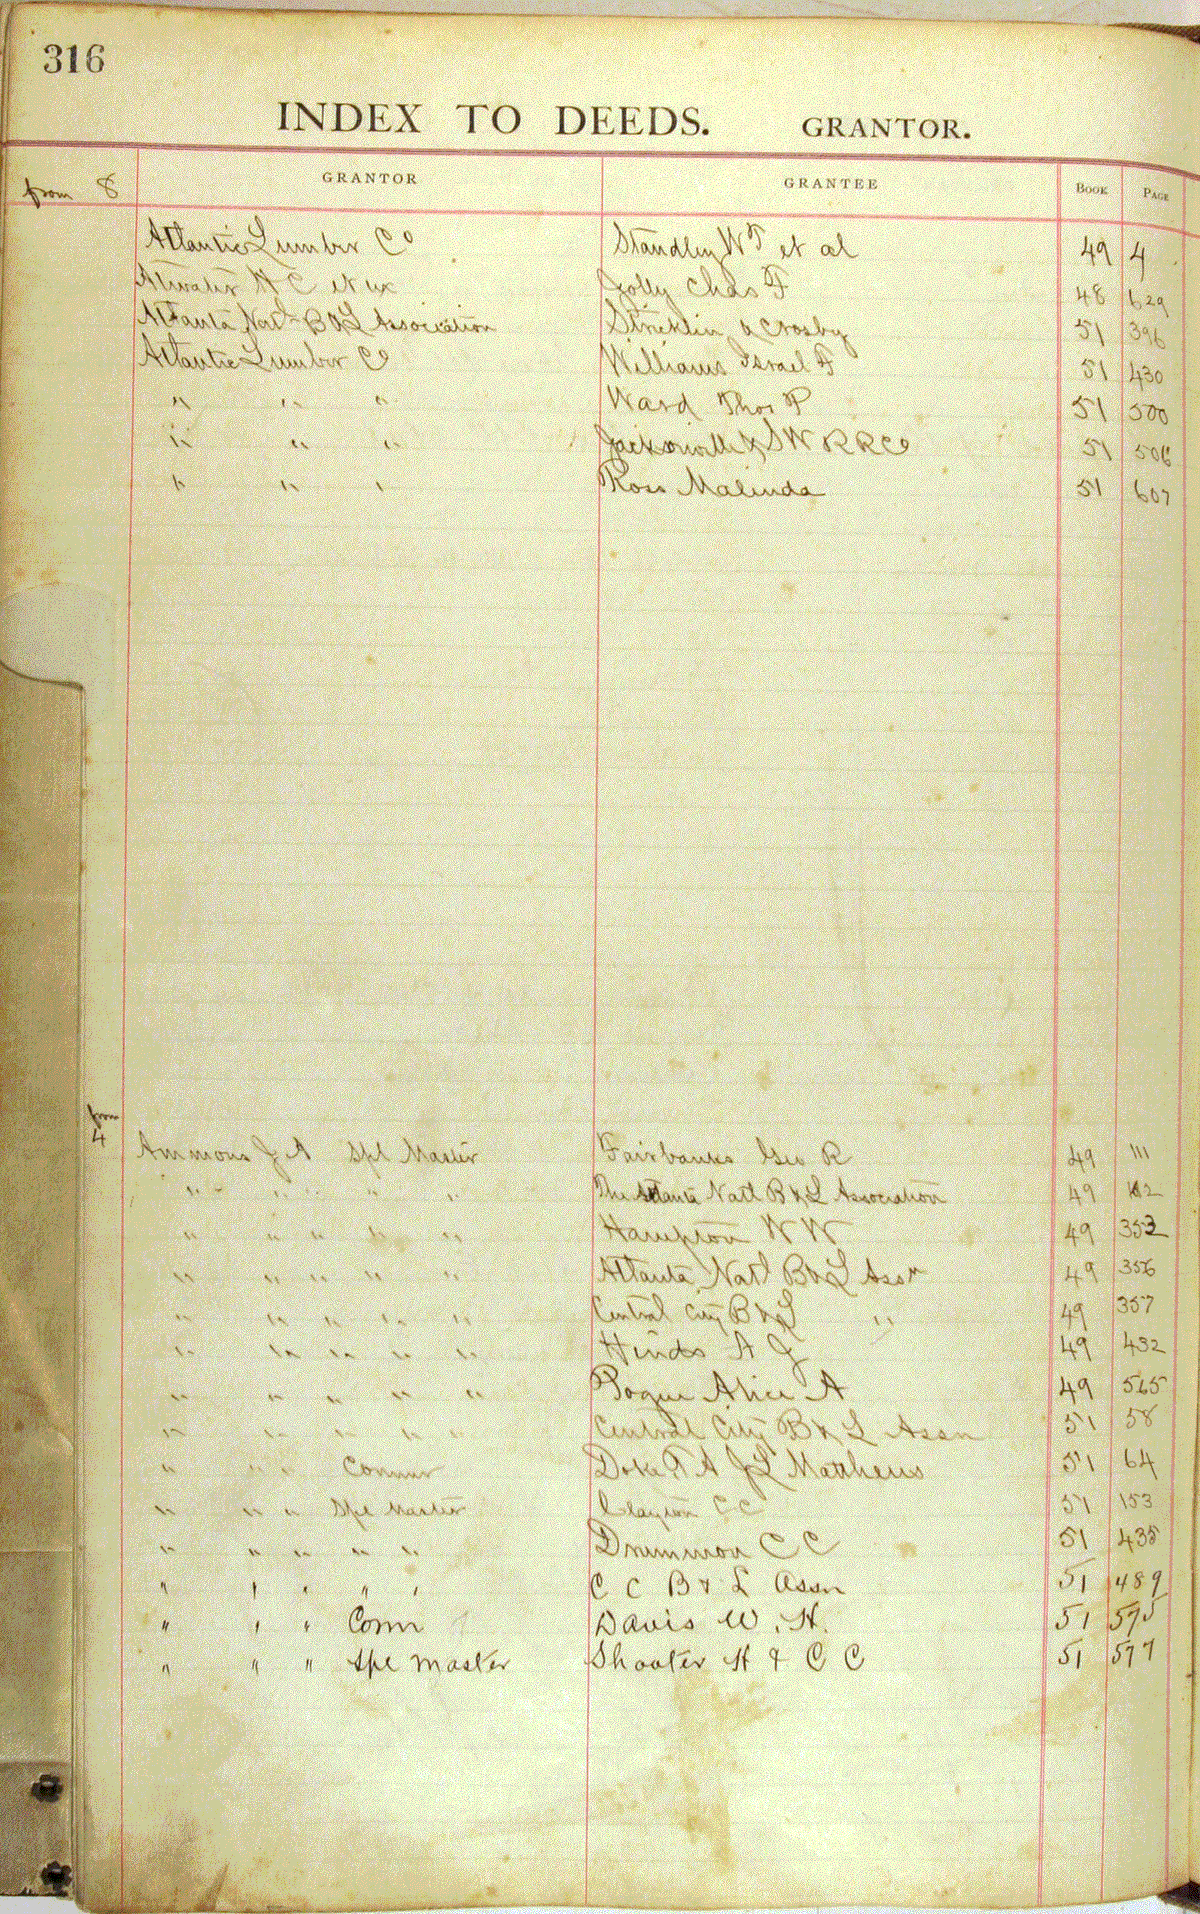 316
INDEX TO DEEDS. GRANTOR.
from 8 GRANTOR GRANTEE BOOK PAGE
Atlantic Lumber Co Standley W T et al 49 4
Atwater H C et ux Jolly Chas F 48 629
Atlanta Natl B & L Association Stricklin & Crosby 51 396
Atlantic Lumber Co Williams Israel F 51 430
" " " Ward Thos P 51 500
" " " Jacksonville & S W R R Co 51 506
" " " Ross Malinda 51 607
from
4
Ammons J A Spl Master Fairbanks Geo R 49 111
" " " " " The Atlanta Natl B & L Association 49
" " " " " Hampton W W 49 353
" " " " " Atlanta Natl B & L Assn 49 356
" " " " " Central City B & L " 49 357
" " " " " Hinds A J 49 432
" " " " " Alice A 49 565
" " " " " Central City B & L Assn 51 58
" " " Commr Doke T A J L Matthews 51 64
" " " Spl Master Clayton C C 51 153
" " " " " Drummon C C 51 435
" " " " " C C B & L Assn 51 489
" " " Comr Davis W. H. 51 575
" " " Spl Master Shooter H & C C 51 577